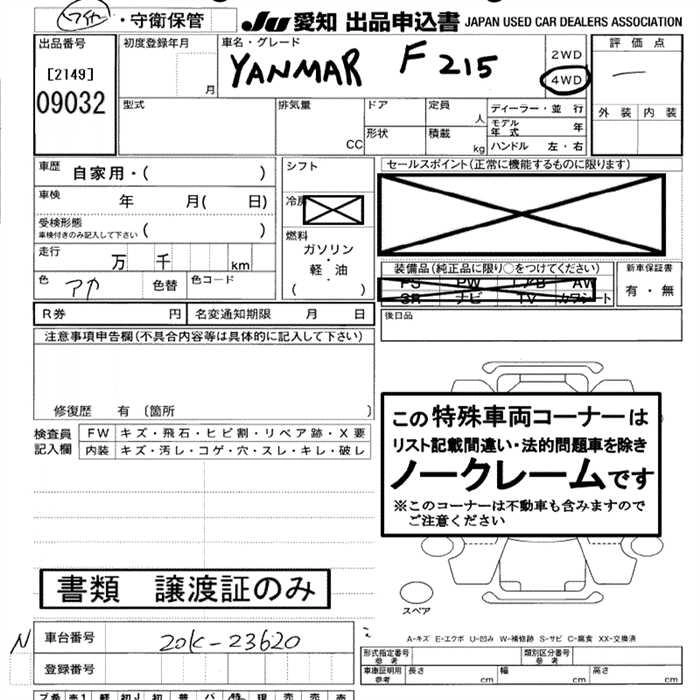 マイカー・守衛保管
JU 愛知 出品申込書 JAPAN USED CAR DEALERS ASSOCIATION
出品番号
[2149]
09032
初度登録年月
月
車名・グレード
YANMAR F215
2WD
4WD
評価点
外装 内装
型式
排気量
CC
ドア
形状
定員
人
積載
kg
ディーラー・並行
モデル年式 年
ハンドル 左・右
車歴 自家用・( )
車検 年 月( 日)
受検形態
車検付きのみ記入して下さい ( )
走行 万 千 km
色 アカ 色替 色コード
シフト
冷房
燃料
ガソリン
・
軽・油
( )
セールスポイント(正常に機能するものに限ります)
装備品(純正品に限り○をつけてください)
PS PW エアB AW
SR ナビ TV カワシート
新車保証書
有・無
後日品
R券 円 名変通知期限 月 日
注意事項申告欄(不具合内容等は具体的に記入して下さい)
修復歴 有 〔箇所 〕
検査員記入欄
FW キズ・飛石・ヒビ割・リペア跡・X要
内装 キズ・汚し・コゲ・穴・スレ・キレ・破し
この特殊車両コーナーは
リスト記載間違い・法的問題車を除き
ノークレームです
※このコーナーは不動車も含みますので
ご注意ください
書類 譲渡証のみ
スペア
A-キズ E-エクボ U-凹み W-補修跡 S-サビ C-腐食 XX-交換済
N 車台番号 20K-23620
登録番号
型式指定番号
参考
類別区分番号
参考
車庫証明用
参考
長さ cm 幅 cm 高さ cm